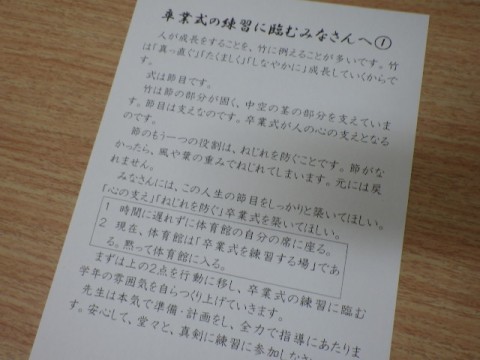 卒業式の練習に臨むみなさんへ①
人が成長をすることを、竹に例えることが多いです。竹
は「真っ直ぐ」「たくましく」「しなやかに」成長していくからで
す。
式は節目です。
竹は節の部分が固く、中空の茎の部分を支えていま
す。節目は支えなのです。卒業式が人の心の支えとなる
のです。
節のもう一つの役割は、ねじれを防ぐことです。節がな
かったら、風や葉の重みでねじれてしまいます。元には戻
れません。
みなさんには、この人生の節目をしっかりと築いてほしい。
「心の支え」「ねじれを防ぐ」卒業式を築いてほしい。
1 時間に遅れずに体育館の自分の席に座る。
2 現在、体育館は「卒業式を練習する場」であ
る。黙って体育館に入る。
まずは上の2点を行動に移し、卒業式の練習に臨む
学年の雰囲気を自らつくり上げていきます。
先生は本気で準備・計画をし、全力で指導にあたりま
す。安心して、堂々と、真剣に練習に参加しなさ